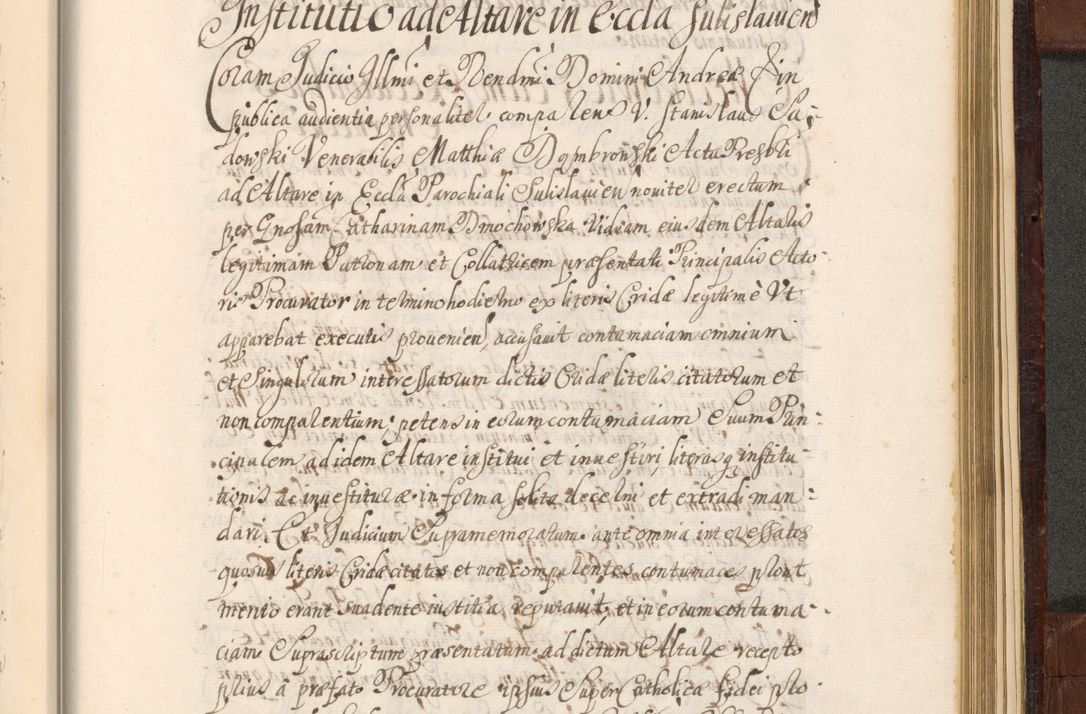 Institutio ad Altare in Eccla Sulislaviens
Coram Judicio Illmi et Rendmi Domini Andreæ in
publica audientia personaliter comparens V. Stanislaus Sa-
dowski Venerabilis Matthiæ Dombrowski Acta Presbri
ad Altare in Eccla Parochiali Sulislavien noviter erectum
per Gnosam Catharinam Dmochowska Viduam eiusdem Altaris
legitimam Patronam et Collatricem præsentati Principalis Acto-
ris Procurator in termino hodierno ex literis Cridæ legitimè Vt
apparebat executis provenien, accusavit contumaciam omnium
et Singulorum interessatorum dictis Cridæ literis citatorum et
non comparentium; petens in eorum contumaciam Suum Prin-
cipalem ad idem Altare institui et investiri, literasq institu-
tionis ac investituræ in forma solita decerni et extradi man-
dari. Et Judicium Supramemoratum ante omnia interessatos
quosvis literis Cridæ citatos et non comparentes contumaces prout
merito erant suadente iustitia reputavit, et in eorum contuma-
ciam Suprascriptum præsentatum ad dictum Altare recepto
prius à præfato Procuratore ipsius Super Catholicæ fidei pro-